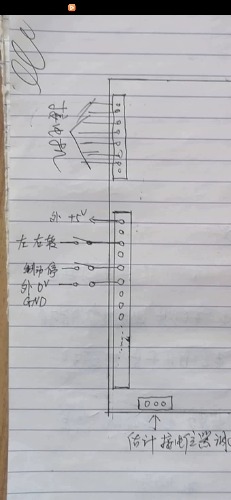 接电机
外 +5V
左右转
制动停
外 0V
GND
估计接电位器调